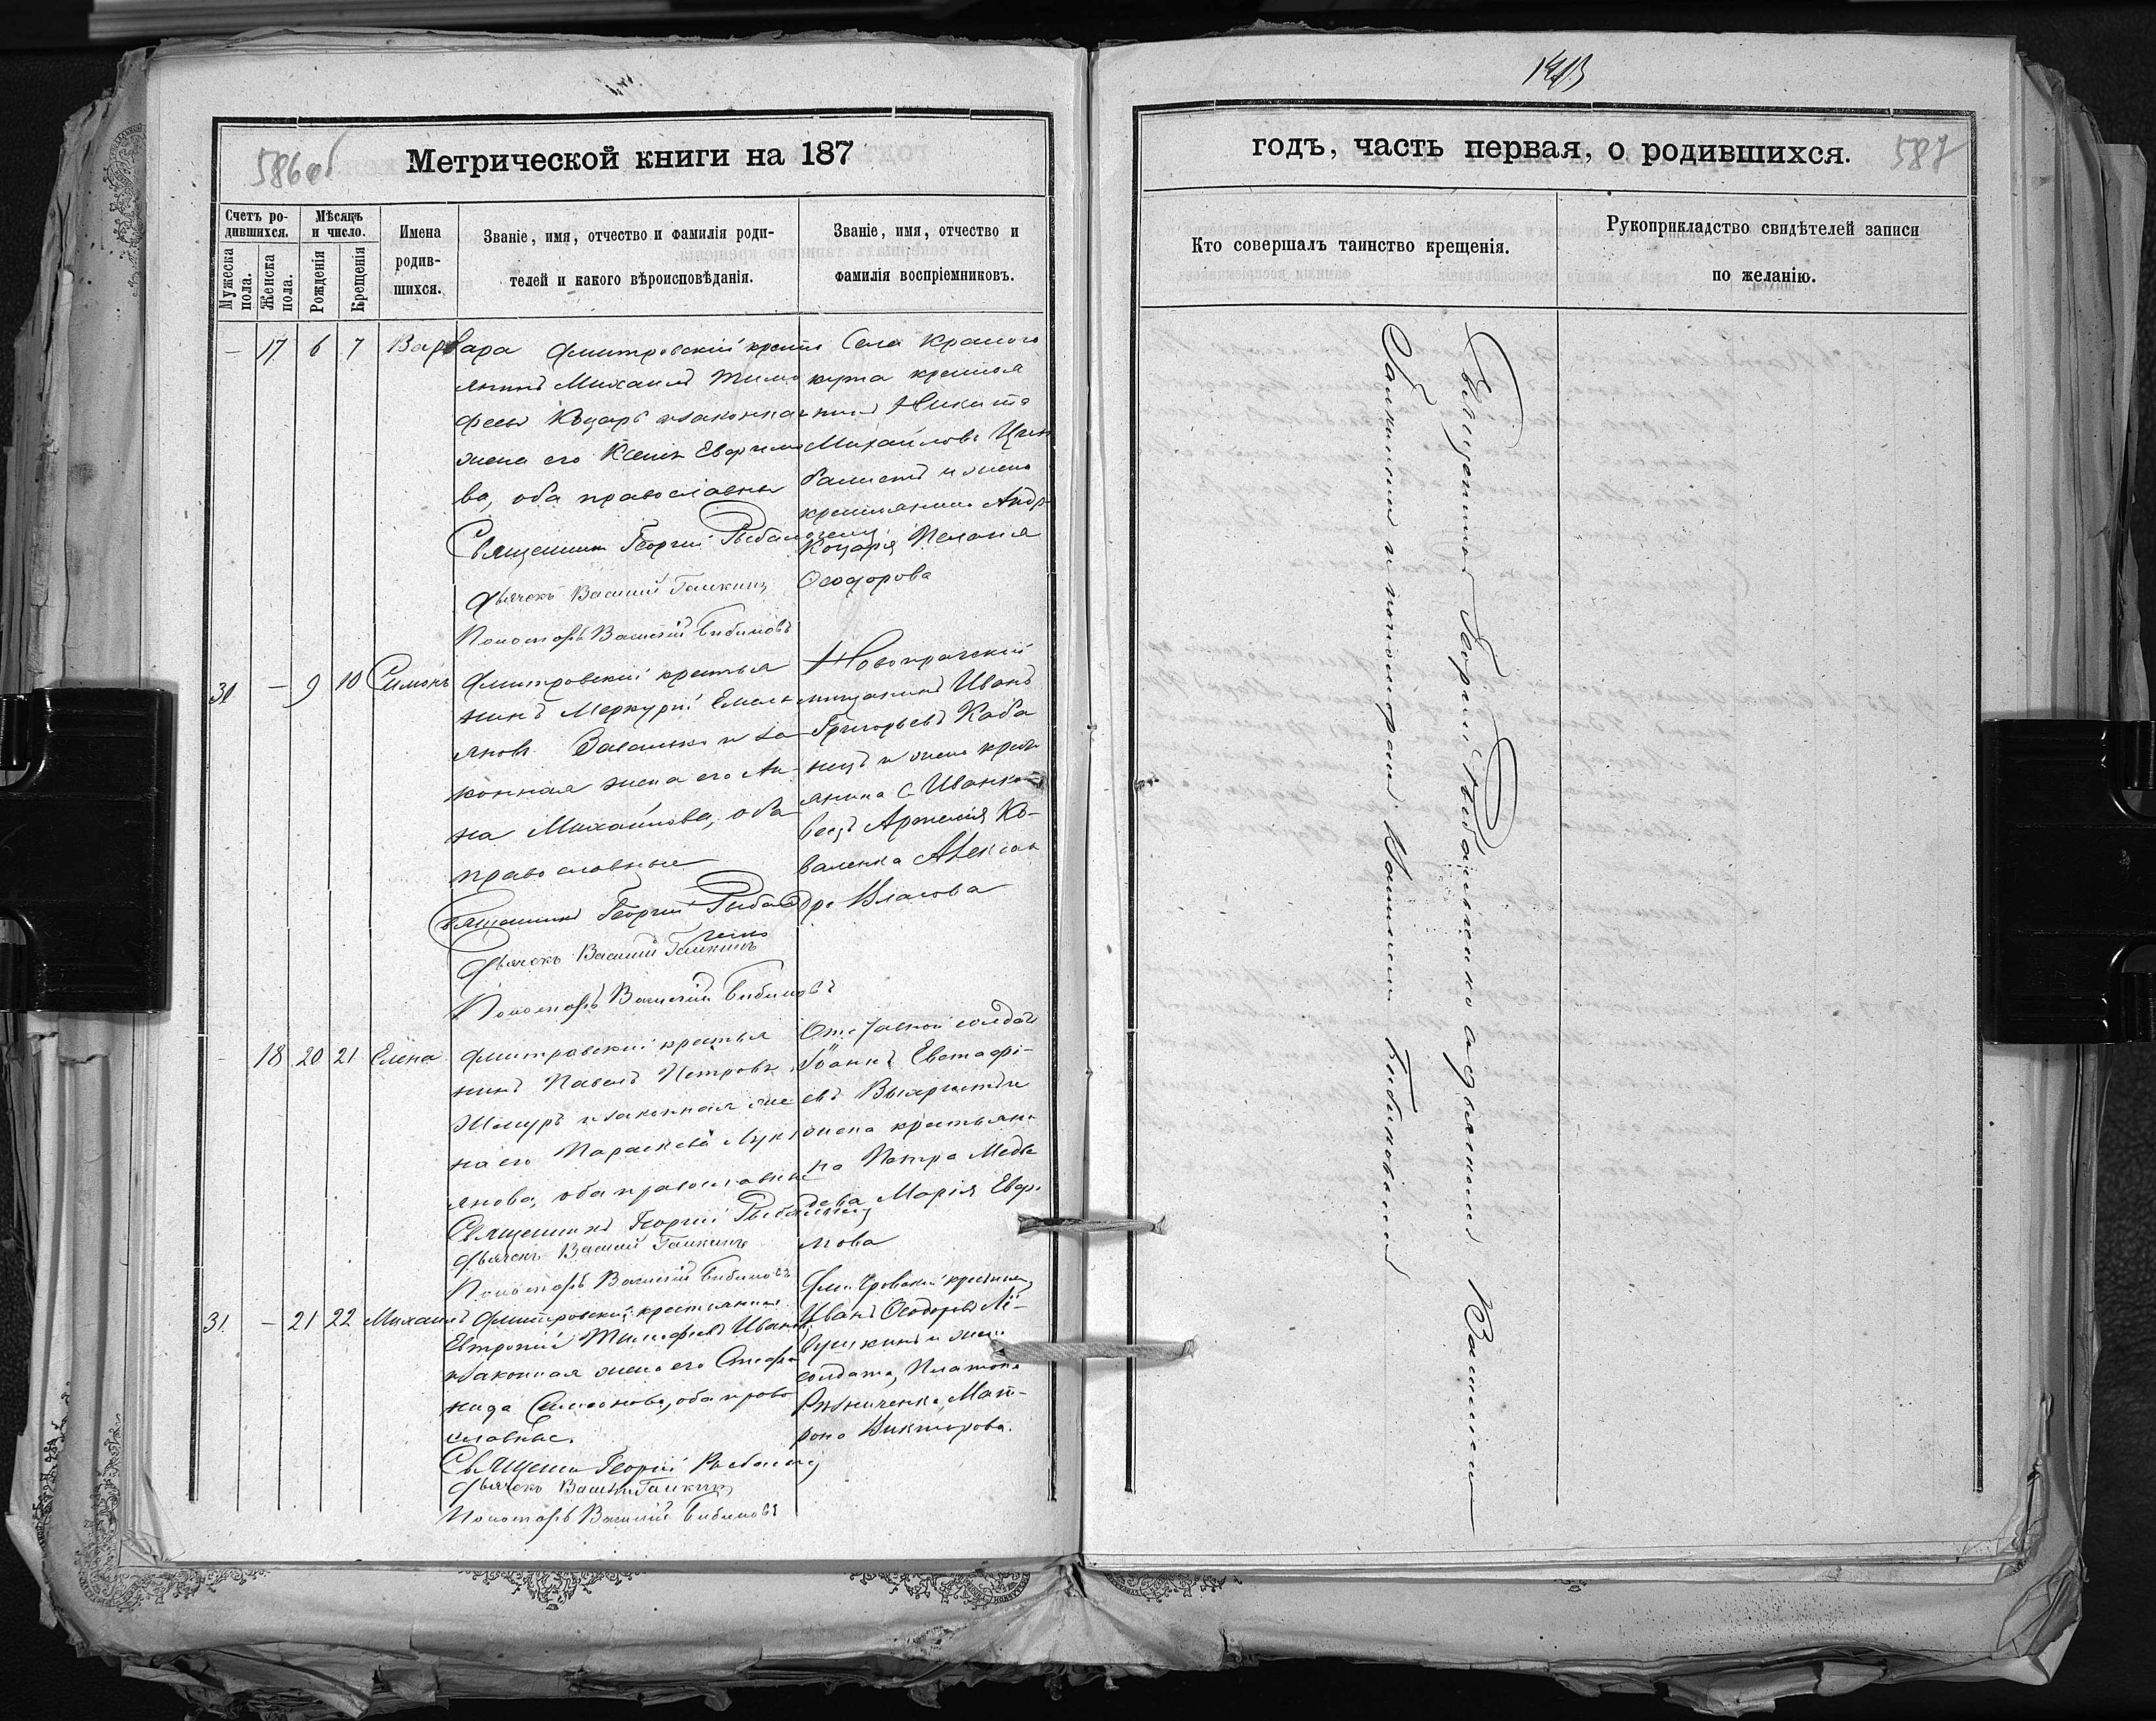 586об
Метрической книги на 187
Счетъ ро-
дившихся.
Мѣсяцъ
и число.
Мужеска
пола.
Женска
пола.
Рожденія
Крещенія
Имена
родив-
шихся.
Званіе, имя, отчество и фамилія роди-
телей и какого вѣроисповѣданія.
Званіе, имя, отчество и
фамилія воспріемниковъ.
— 17 6 7 Варвара
Дмитровскій крестья
янинъ Михаилъ Тимо
феевъ Коцарь и законная
жена его Ксенія
ва, оба православны
Священникъ Георгій Рыбальченко
Дьячекъ Василий Галкинъ
Пономарь Василій Бибиковъ
Села Краснаго
кута крестья
нинъ Никита
Михайловъ
и жена
крестьянина Андр
Коцаря Пелагія
Ѳеодорова
30 — 9 10 Симонъ
Дмитровскій крестья
нинъ Меркурій Емель
яновъ и за
конная жена его Ан
на Михайлова, оба
православные
Священникъ Георгій Рыбаль
ченко
Дьячекъ Василий Галкинъ
Пономарь Василій Бибиковъ
Новопражскій
мещанинъ Иванъ
Григорьевъ Каба
нецъ и жена крест
янина с Иванко
вецъ Артемія Ко-
валенка Алексан
дра Власова
— 18 20 21 Елена
Дмитровскій крестья
нинъ Павелъ Петровъ
и законная же
на его Параскева Лукі
янова, оба православные
Священникъ Георгій Рыбальченко
Дьячекъ Василий Галкинъ
Пономарь Василій Бибиковъ
Отставной солдатъ
Іоаннъ Евстафі-
евъ
жена крестьяни
на Петра Медве
дева Марія Ефи
мова
31 — 21 22 Михаилъ
Дмитровскій крестьянинъ
Евтропій Тимофеевъ
и законная жена его Стефа
нида Симеонова, оба право
славные.
Священникъ Георгій Рыбальченко
Дьячекъ Василій Галкинъ
Пономарь Василій Бибиковъ
Дмитровскій крестьян
Иванъ Ѳеодоровъ Лё-
вушкинъ и жена
солдата Платона
Резниченка Мат-
рона Викторова.
годъ, часть первая, о родившихся.
587
Кто совершалъ таинство крещенія.
Рукоприкладство свидѣтелей записи
по желанію.
Священникъ Георгій Рыбальченко съ дьячкомъ Василіемъ
Галкинымъ и пономаремъ Василіемъ Бибиковымъ